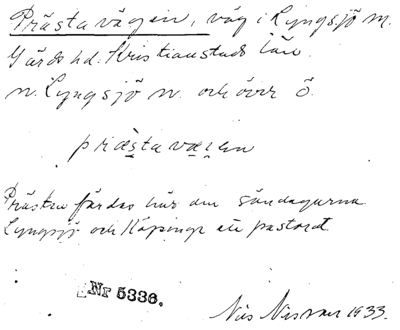 Prästavägen, väg i Lyngsjö m.
Gärds hd. Kristianstads län
n. Lyngsjö n. och över ö.
præstavæ̱gen
Prästen färdas här om söndagarna
Lyngsjö och Köpinge ett pastorat
Nr 5336.
Nils 1933.